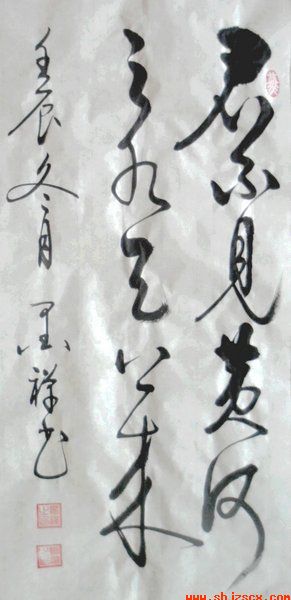 君不见黄河
之水天上来
壬辰冬月 墨祥书
www.shjzscx.com